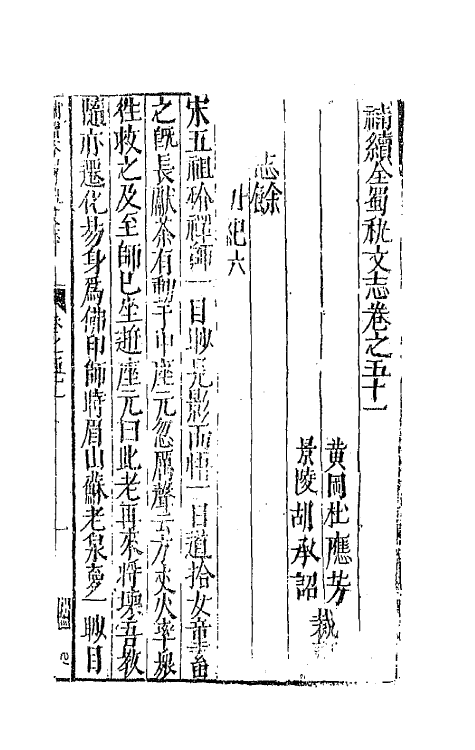 補續全蜀秇文志卷之五十一
黃岡杜應芳
景陵胡承詔 裁
志餘
外紀六
宋五祖砂禪師一目眇見影而悟一日道拾女童畜
之旣長獻茶有動于中座元忽厲聲云方丈火率眾
往救之及至師已坐逝座元曰此老再來將壞吾敎
隨亦遷化易身爲佛印師時眉山蘇老泉夢一眇目